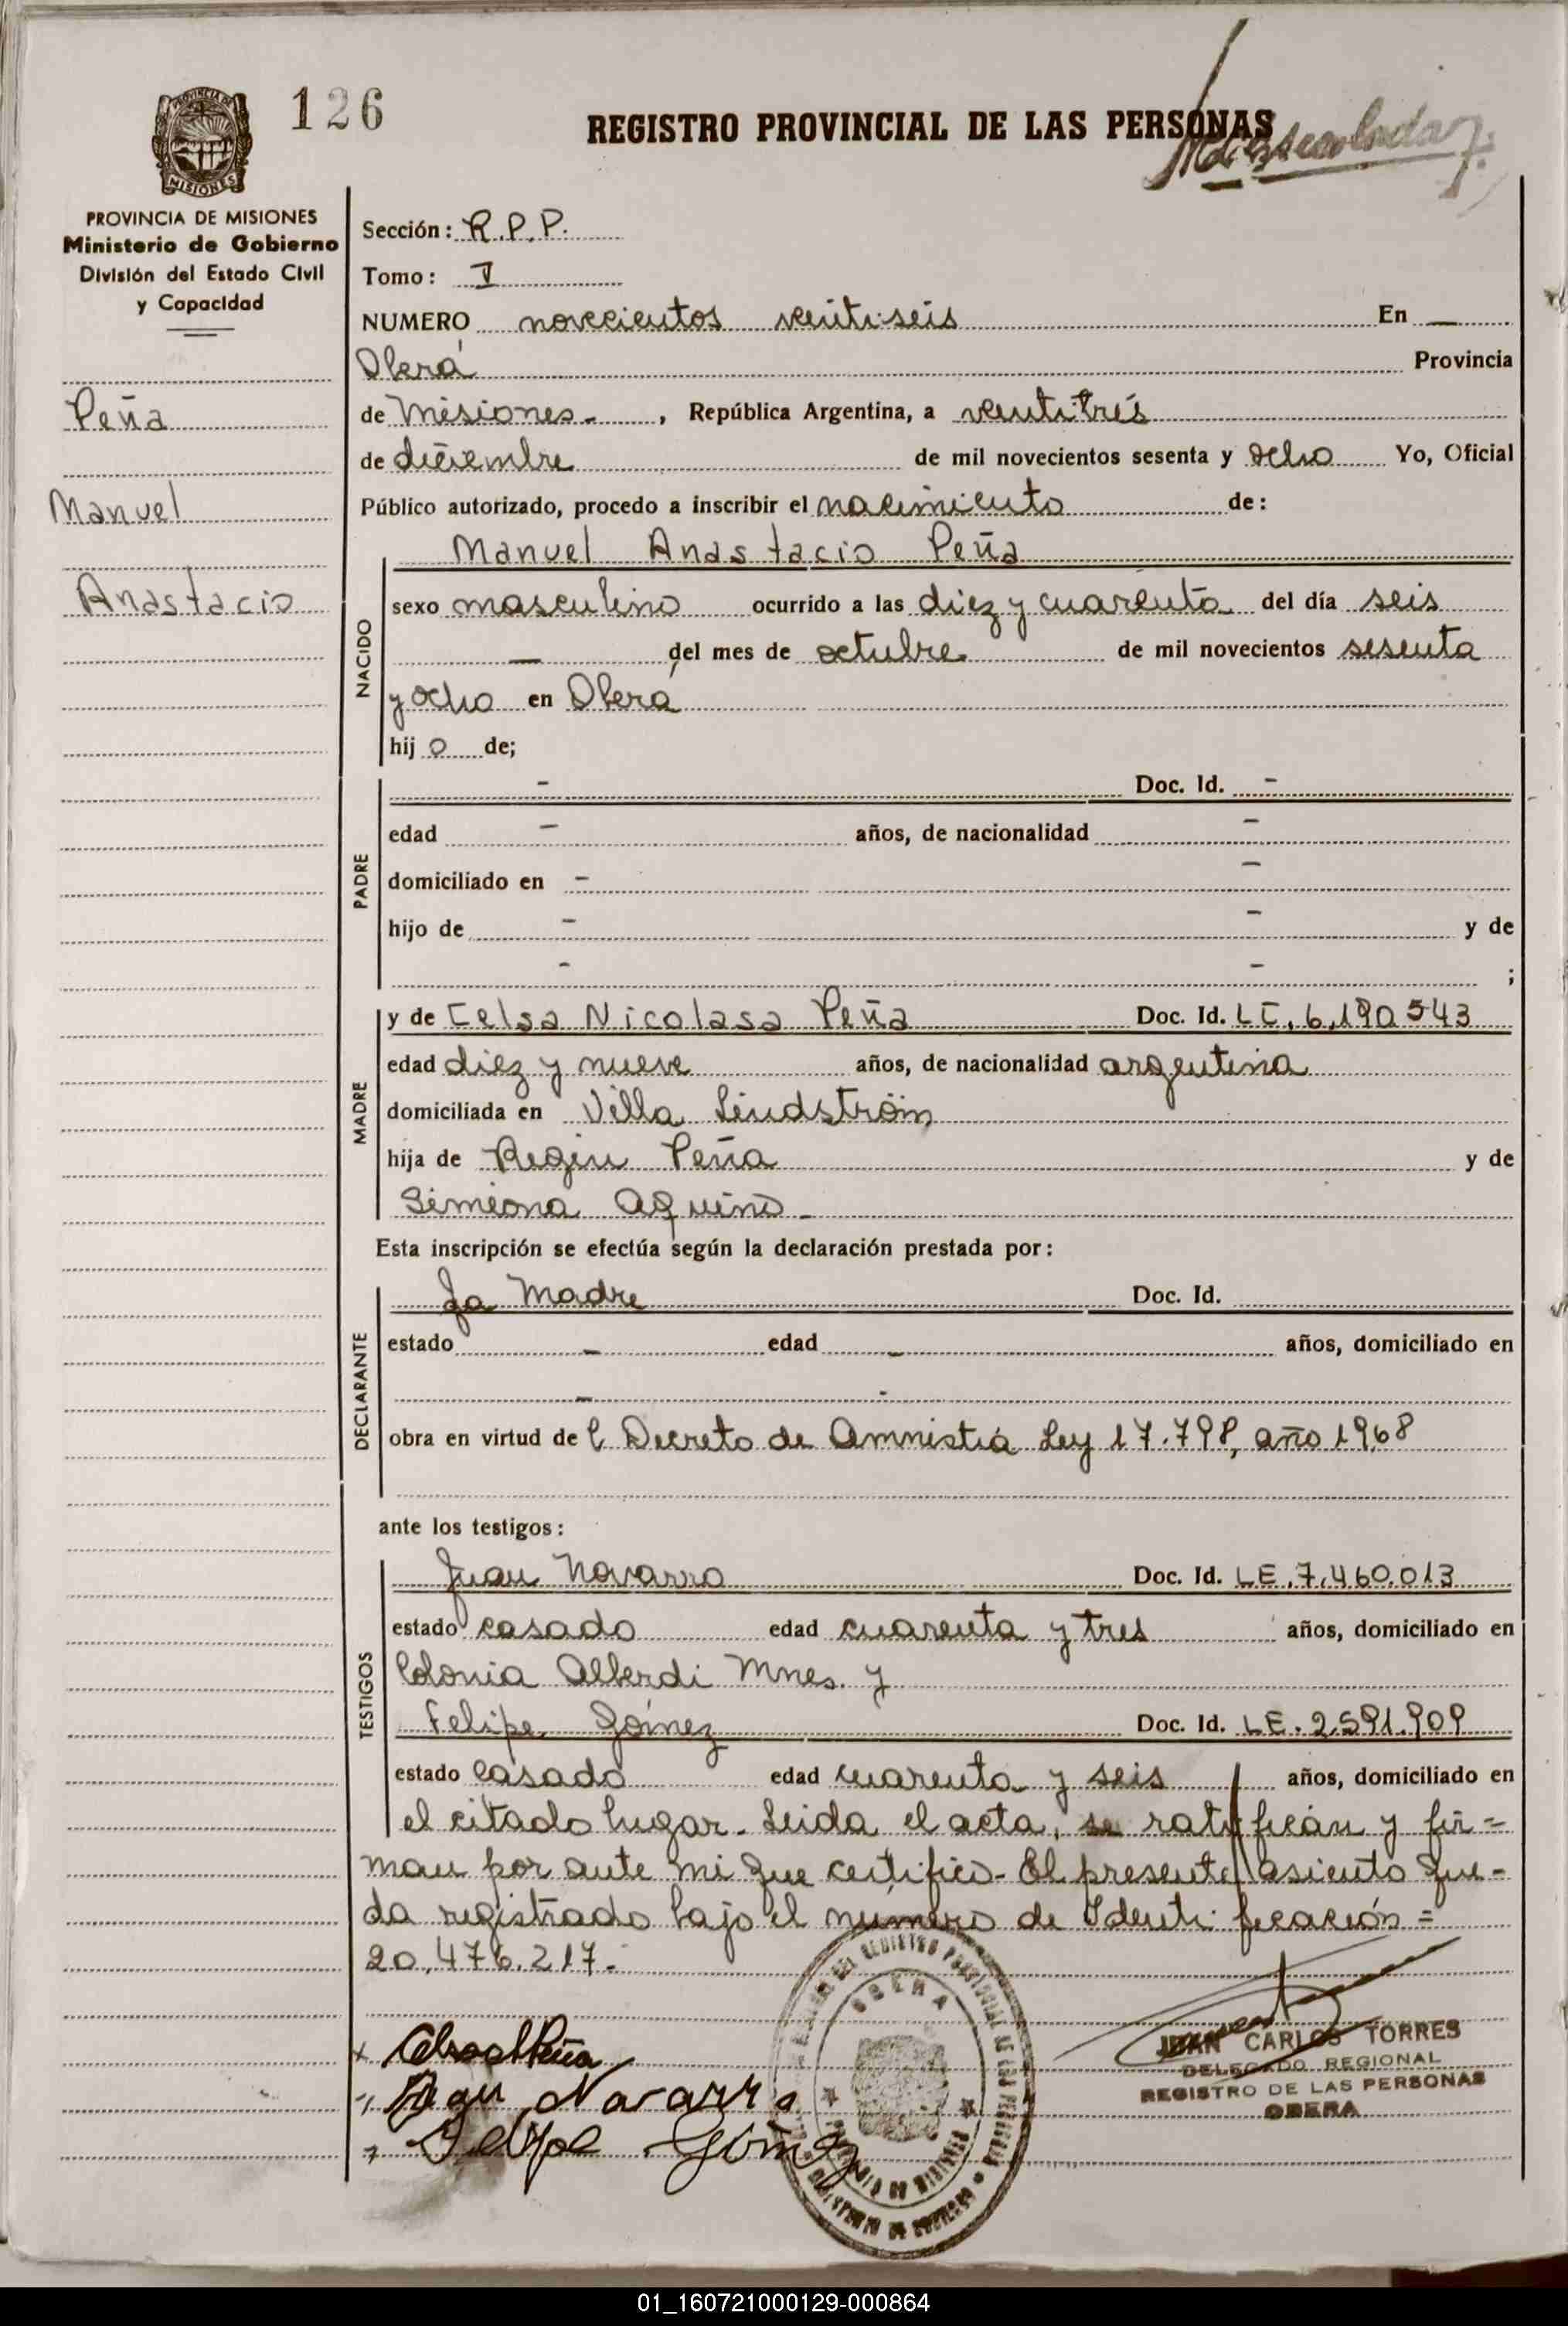 126
REGISTRO PROVINCIAL DE LAS PERSONAS
MISIONES
PROVINCIA DE MISIONES
Ministerio de Gobierno
División del Estado Civil
y Capacidad
Peña
Manuel
Anastacio
Sección: R.P.P.
Tomo: V
NUMERO novecientos veinti-seis En —
Oberá Provincia
de Misiones-, República Argentina, a veintitrés
de diciembre de mil novecientos sesenta y ocho Yo, Oficial
Público autorizado, procedo a inscribir el nacimiento de:
Manuel Anastacio Peña
NACIDO
sexo masculino ocurrido a las diez y cuarenta del día seis
— del mes de octubre de mil novecientos sesenta
y ocho en Oberá
hij o de;
PADRE
- Doc. Id. -
edad - años, de nacionalidad -
domiciliado en - -
hijo de - - y de
- - ;
MADRE
y de Celsa Nicolasa Peña Doc. Id. LC. 6.190543
edad diez y nueve años, de nacionalidad argentina
domiciliada en Villa Lindström
hija de Regin Peña y de
Simeona Aquino -
Esta inscripción se efectúa según la declaración prestada por:
DECLARANTE
La Madre Doc. Id.
estado - edad - años, domiciliado en
- -
obra en virtud de l Decreto de Amnistia Ley 17.798, año 1968
ante los testigos:
TESTIGOS
Juan Navarro Doc. Id. LE. 7.460.013
estado casado edad cuarenta y tres años, domiciliado en
Colonia Alberdi Mnes. y
Felipe Gómez Doc. Id. LE. 2.591.909
estado casado edad cuarenta y seis años, domiciliado en
el citado lugar. Leida el acta, se ratifican y fir=
man por ante mi que certifico- El presente asiento que-
da registrado bajo el número de Identificación =
20.476.217.-
Juan Navarro
Felipe Gómez
OBERA
JUAN CARLOS TORRES
DELEGADO REGIONAL
REGISTRO DE LAS PERSONAS
OBERA
01_160721000129-000864